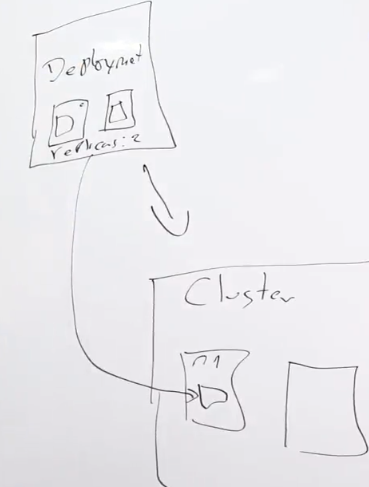 Deployment
replicas: 2
Cluster
n1